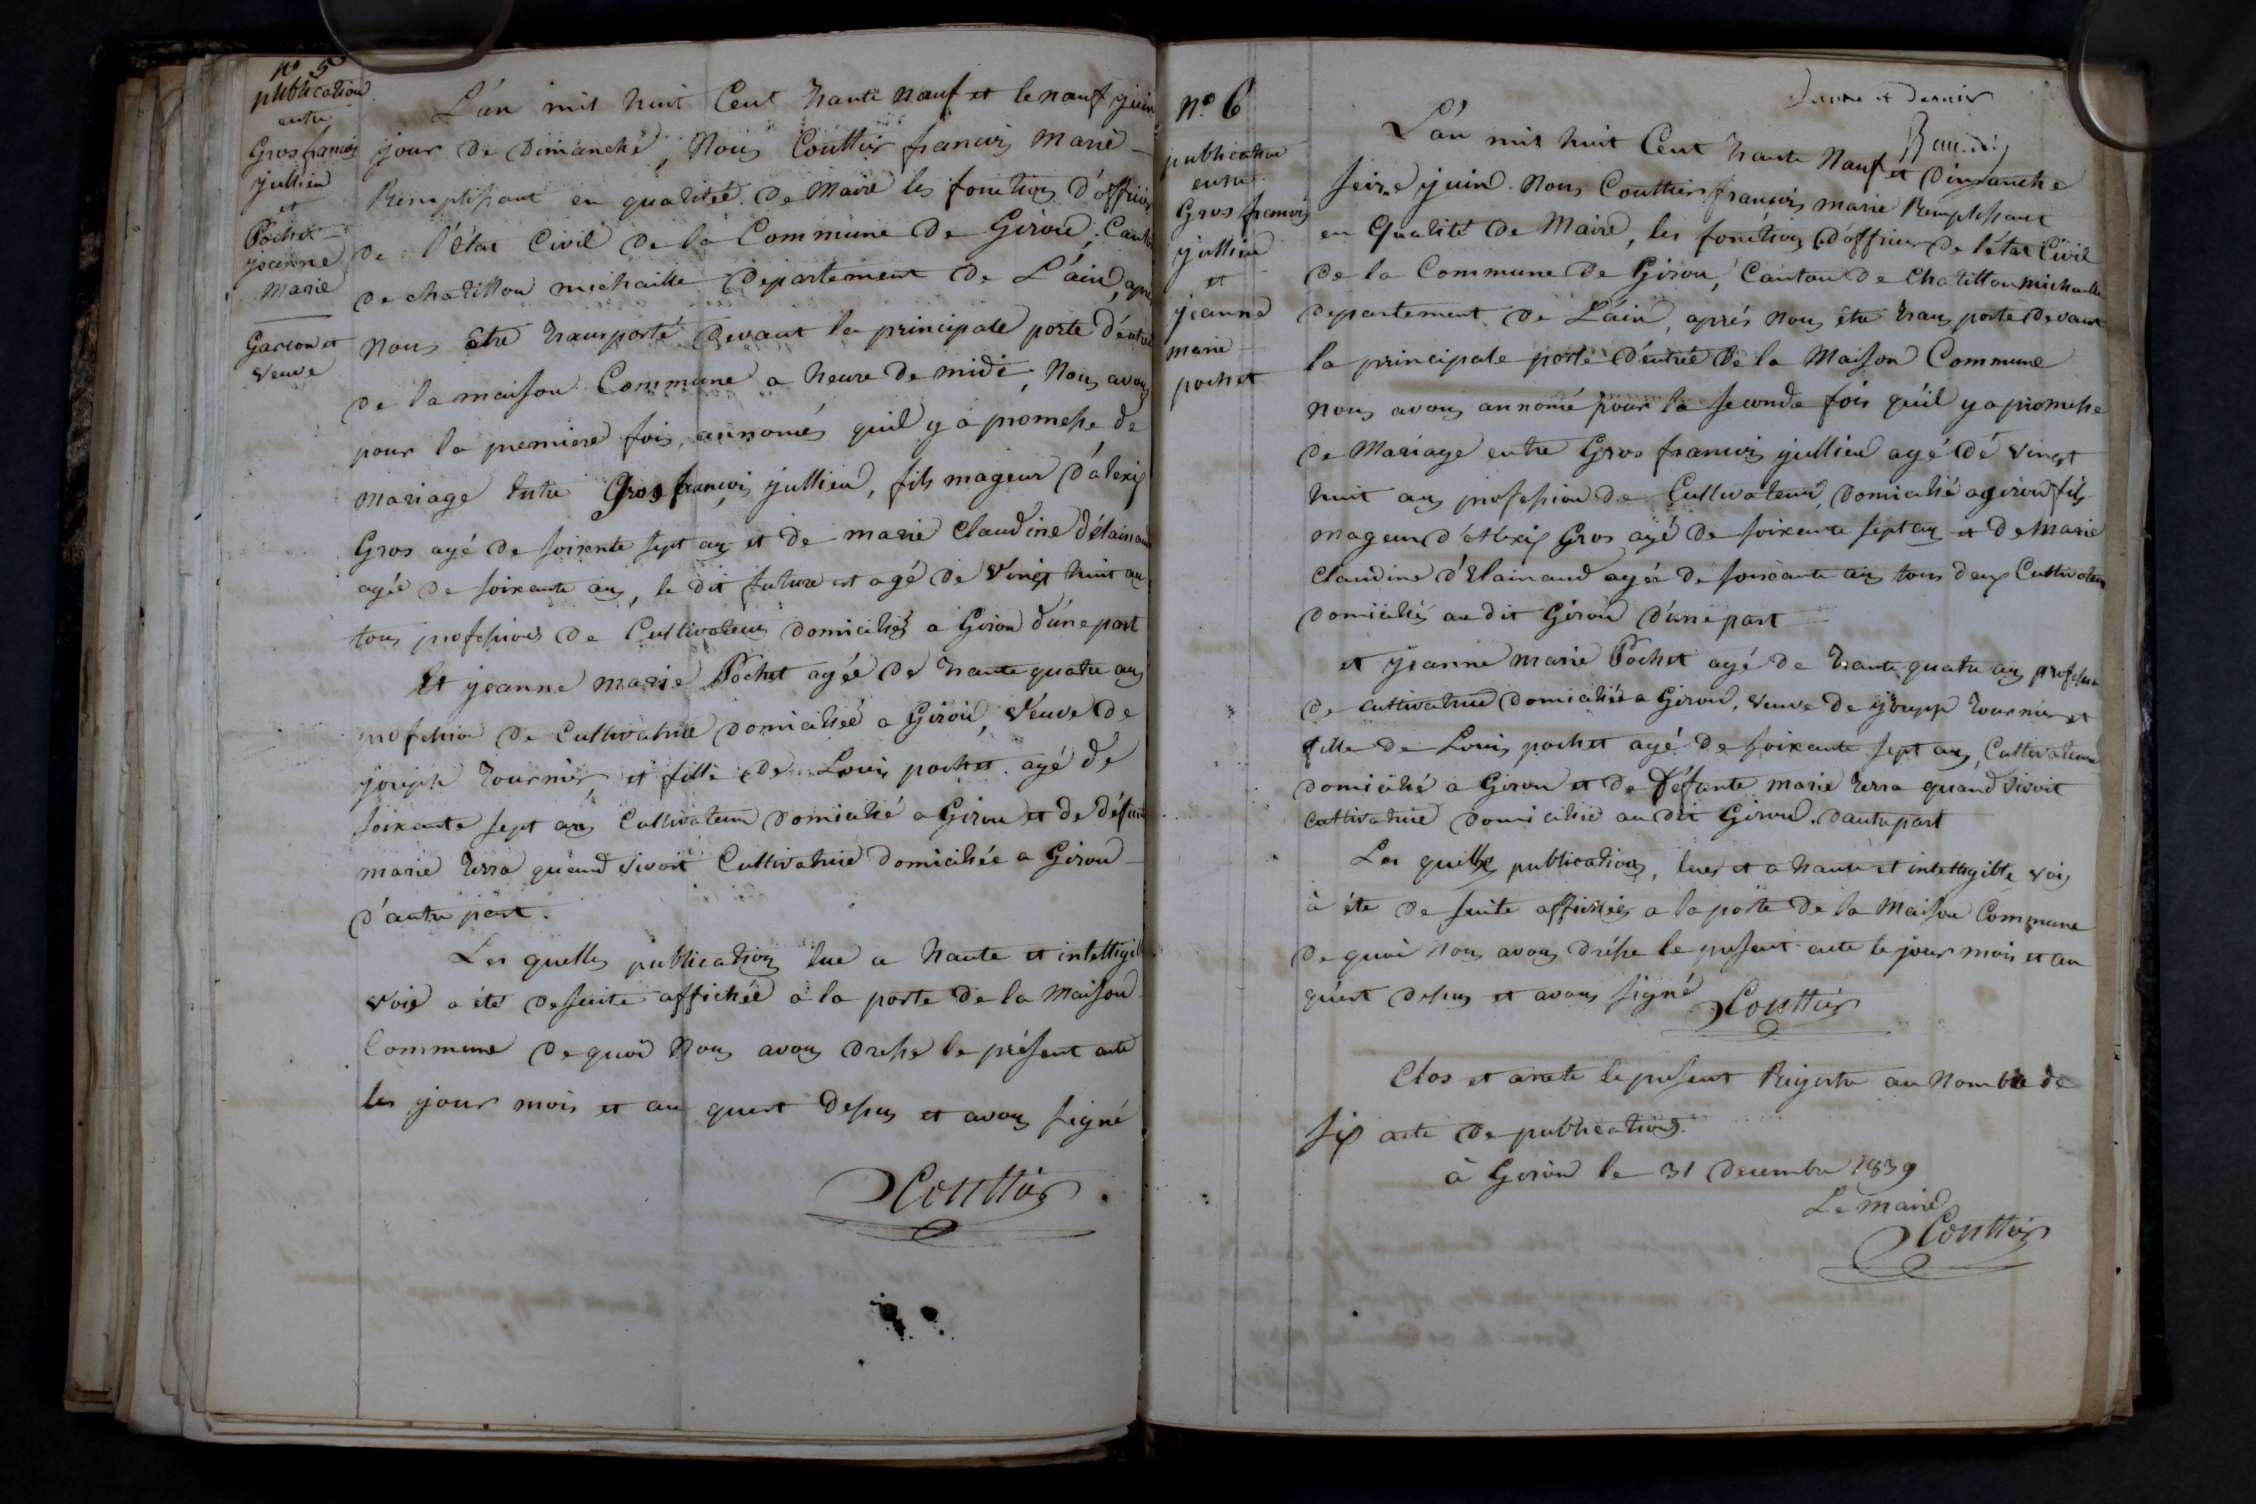 n° 5
publication
entre
Gros francois
jullien
et
Pochet
jeanne
Marie
Garcon et
veuve
L'an mil huit Cent trente nauf et le nauf juin
jour de Dimanche, Nous Couttier francois Marie
Remplissant en qualitée de Maire les fonctions d'officier
de l'état Civil de la Commune de Giron, Canton
de chatillon michaille Departement de L'ain, apres
nous etre transporté devant la principale porte d'entrée
de la maison Commune a heure de midi, Nous avons
pour la premiere fois, annoncés quil y a promesse de
mariage entre Gros francois jullien, fils mageur d'alexis
Gros agé de soixente sept ans et de marie Claudine d'élainaud
agée de soixante ans, le dit future est agé de Vingt huit ans
tous profession de Cultivateurs domiciliés a Giron d'une part
Et jeanne marie Pochet agée de trante quatre ans
profession de Cultivatrice domiciliée a Giron, Veuve de
joseph tournier, et fille de Louis pochet agé de
soixante sept ans Cultivateur domicilié a Giron et de défunte
marie terra quand vivoit Cultivatrice domiciliée a Giron
d'autre part.
Les quelles publications lue a haute et intelligible
voie a été desuite affichée a la porte de la Maison
Commune de quoi Nous avons dresse le présent acte
les jour mois et an quest dessus et avons signé
Couttier
n° 6
publication
entre
Gros francois
jullien
et
jeanne
marie
pochet
et dernier
L'an mil huit Cent trante Nauf et Dimanche
seize juin. Nous Couttier francois marie Remplissant
en Qualité de Maire, les fonctions d'officier de l'état Civil
de la Commune de Giron, Canton de Chatillon michaille
departement de L'ain, aprés nous être transporté devant
la principale porte d'entrée de la Maison Commune
nous avons annoncé pour la seconde fois qu'il y a promesse
de Mariage entre Gros francois jullien agé dé vingt
huit ans profession de Cultivateur, domicilié a giron fils
mageur d'Alexis Gros agé de soixente sept ans et de Marie
Claudine d'Elainaud agée de soixante ans tous deux Cultivateurs
domiciliés au dit Giron d'une part
et jeanne marie Pochet agé de trante quatre ans profession
de cultivatrice domiciliée a Giron, veuve de joseph tournier et
fille de Louis pochet agé de soixante sept ans, Cultivateur
domicilié a Giron et de Défunte marie terra quand vivoit
cultivatrice domiciliée au dit Giron. d'autre part
Les quelles publications, lues et a haute et intelligible voix
à éte de suite affichées a la porte de la Maison Commune
de quoi nous avons dresse le présent acte le jour mois et an
qu'est dessus et avons signé
Couttier
Clos et arrete le present Registre au Nombre de
six acte de publications
à Giron le 31 decembre 1839
Le maire
Couttier